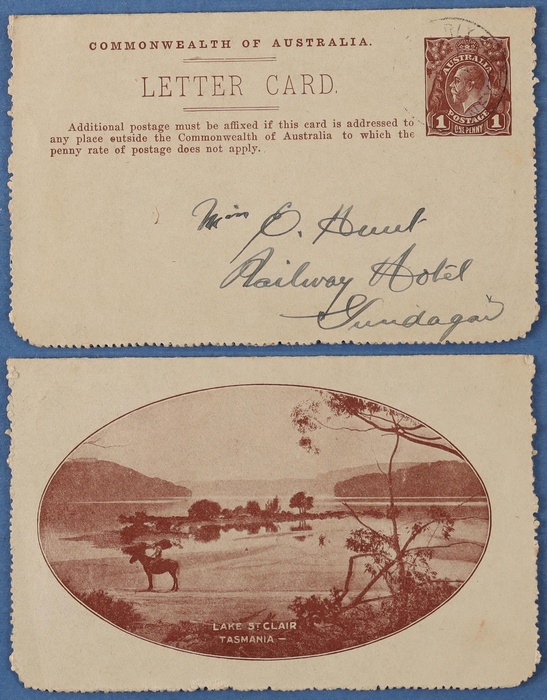 COMMONWEALTH OF AUSTRALIA.
LETTER CARD.
AUSTRALIA
POSTAGE
1 ONE PENNY 1
Additional postage must be affixed if this card is addressed to
any place outside the Commonwealth of Australia to which the
penny rate of postage does not apply.
Miss O. Hunt
Railway Hotel
Gundagai
LAKE ST CLAIR
TASMANIA –